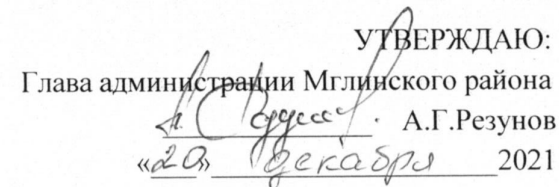 УТВЕРЖДАЮ:
Глава администрации Мглинского района
А.Г.Резунов
«20» декабря 2021